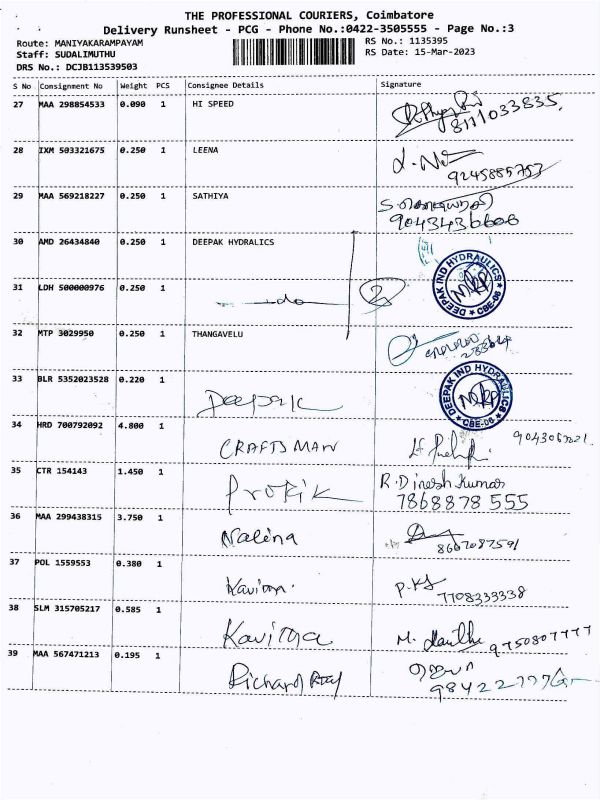 THE PROFESSIONAL COURIERS, Coimbatore
Delivery Runsheet - PCG - Phone No.:0422-3505555 - Page No.:3
Route: MANIYAKARAMPAYAM
RS No.: 1135395
Staff: SUDALIMUTHU
RS Date: 15-Mar-2023
DRS No.: DCJB113539503
S No Consignment No Weight PCS Consignee Details Signature
27 MAA 298854533 0.090 1 HI SPEED
8111033835
28 IXM 503321675 0.250 1 LEENA
9245885753
29 MAA 569218227 0.250 1 SATHIYA
9043436606
30 AMD 26434840 0.250 1 DEEPAK HYDRALICS
DEEPAK IND HYDRAULICS
CBE-06
31 LDH 500000976 0.250 1 do
32 MTP 3029950 0.250 1 THANGAVELU
33 BLR 5352023528 0.220 1 Deepak
DEEPAK IND HYDRAULICS
CBE-06
34 HRD 700792092 4.800 1 CRAFTSMAN
35 CTR 154143 1.450 1 Protik R. Dinesh Kumar
7868878 555
36 MAA 299438315 3.750 1 Nalina
8667087591
37 POL 1559553 0.380 1 Kavitha P.KS
7708333338
38 SLM 315705217 0.585 1 Kavitha M.
9750807777
39 MAA 567471213 0.195 1 Richard Raj